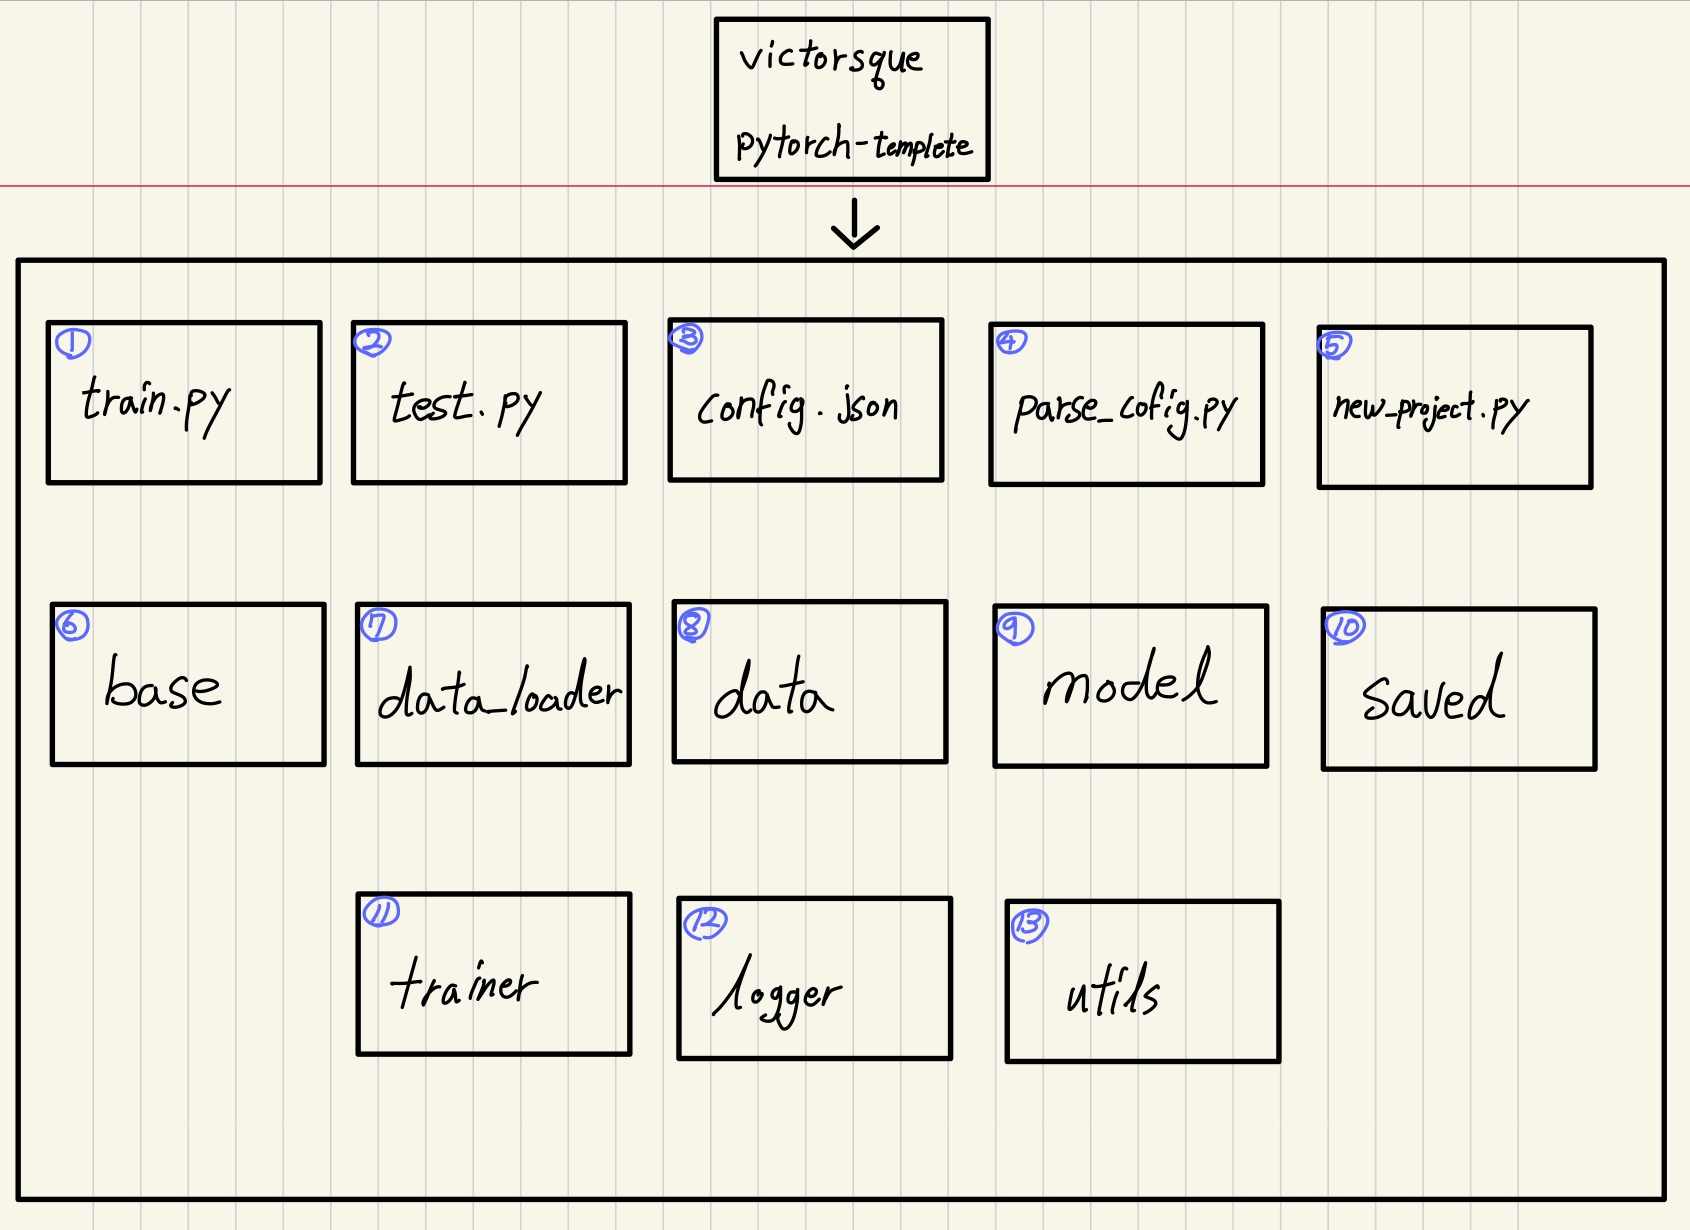 victorsque
pytorch-templete
①
train.py
②
test.py
③
config.json
④
parse_cofig.py
⑤
new_project.py
⑥
base
⑦
data_loader
⑧
data
⑨
model
⑩
saved
⑪
trainer
⑫
logger
⑬
utils